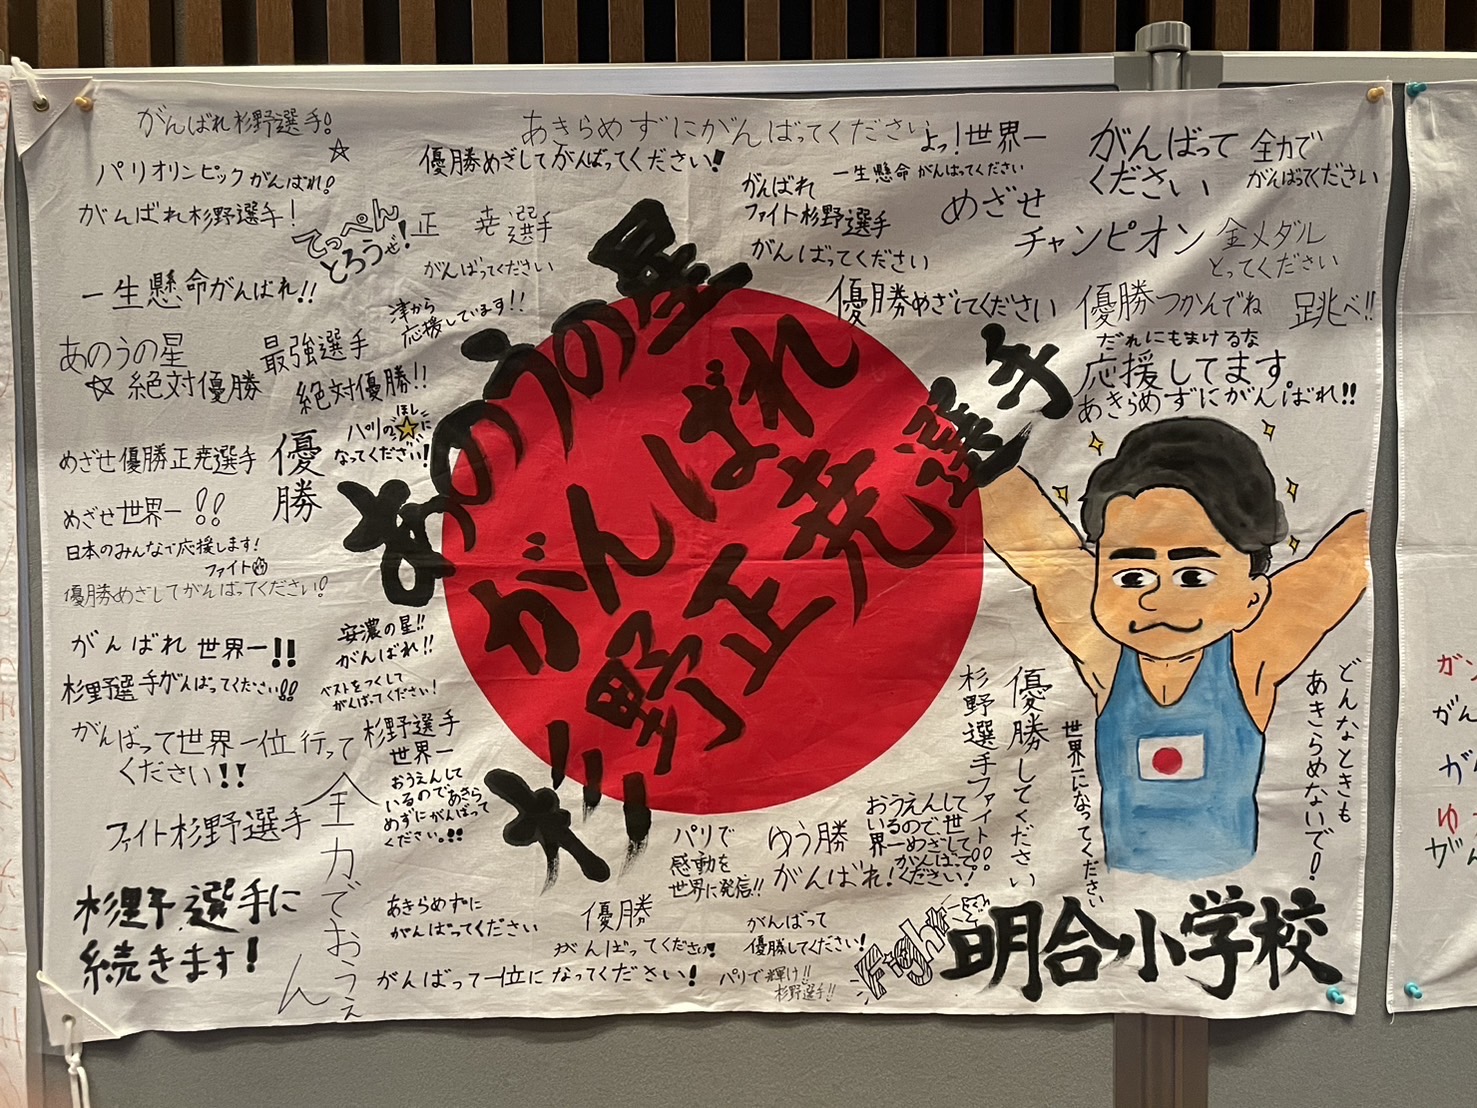 がんばれ杉野選手!
パリオリンピックがんばれ!
がんばれ杉野選手!
てっぺん
とろうぜ!
正尭選手
がんばってください
一生懸命がんばれ!!
津から
応援しています!!
あのうの星
☆絶対優勝
最強選手
絶対優勝!!
パリの☆に
ほし
なってください!
めざせ優勝正尭選手
優勝
めざせ世界一!!
日本のみんなで応援します!
ファイト
優勝めざしてがんばってください!
がんばれ世界一!!
杉野選手がんばってください!!
がんばって世界一位行って
ください!!
ファイト杉野選手
安濃の星!!
がんばれ!!
ベストをつくして
がんばってください!
杉野選手
世界一
おうえんして
いるのであきら
めずにがんばって
ください。!!
全力でおうえん
杉野選手に
続きます!
あきらめずにがんばってください
優勝めざしてがんばってください!
よっ!世界一
一生懸命がんばってください
がんばれ
ファイト杉野選手
がんばってください
めざせ
チャンピオン
がんばって
ください
全力で
がんばってください
金メダル
とってください
優勝めざしてください
優勝つかんでね
跳べ!!
だれにもまけるな
応援してます。
あきらめずにがんばれ!!
あのうの星
がんばれ
杉野正尭選手
杉野選手ファイト!!
優勝してください
世界一になってください
どんなときも
あきらめないで!
パリで
感動を
世界に発信!!
ゆう勝
がんばれ!
おうえんして
いるので、世
界一めざして
がんばって
ください!
あきらめずに
がんばってください
優勝
がんばってください!
がんばって
優勝してください!
がんばって一位になってください!
パリで輝け!!
杉野選手!!
Fight
明合小学校